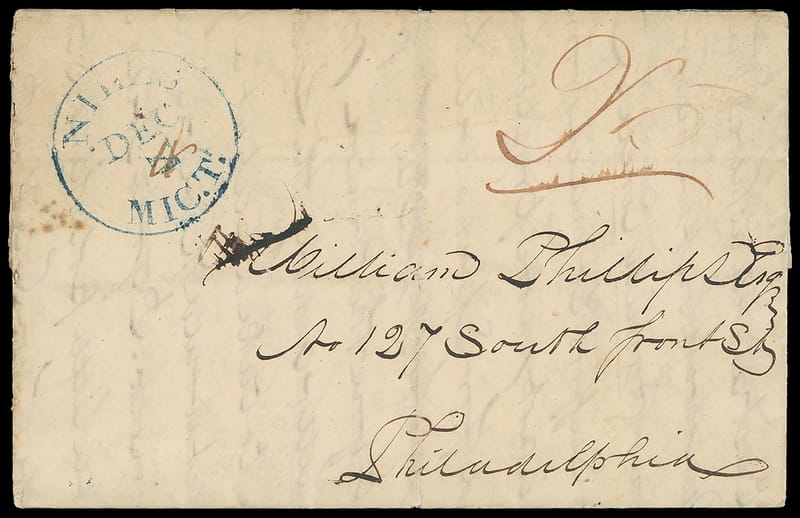 NILES
DEC
MIC.T.
25
William Phillips Esqr
No 127 South front St
Philadelphia